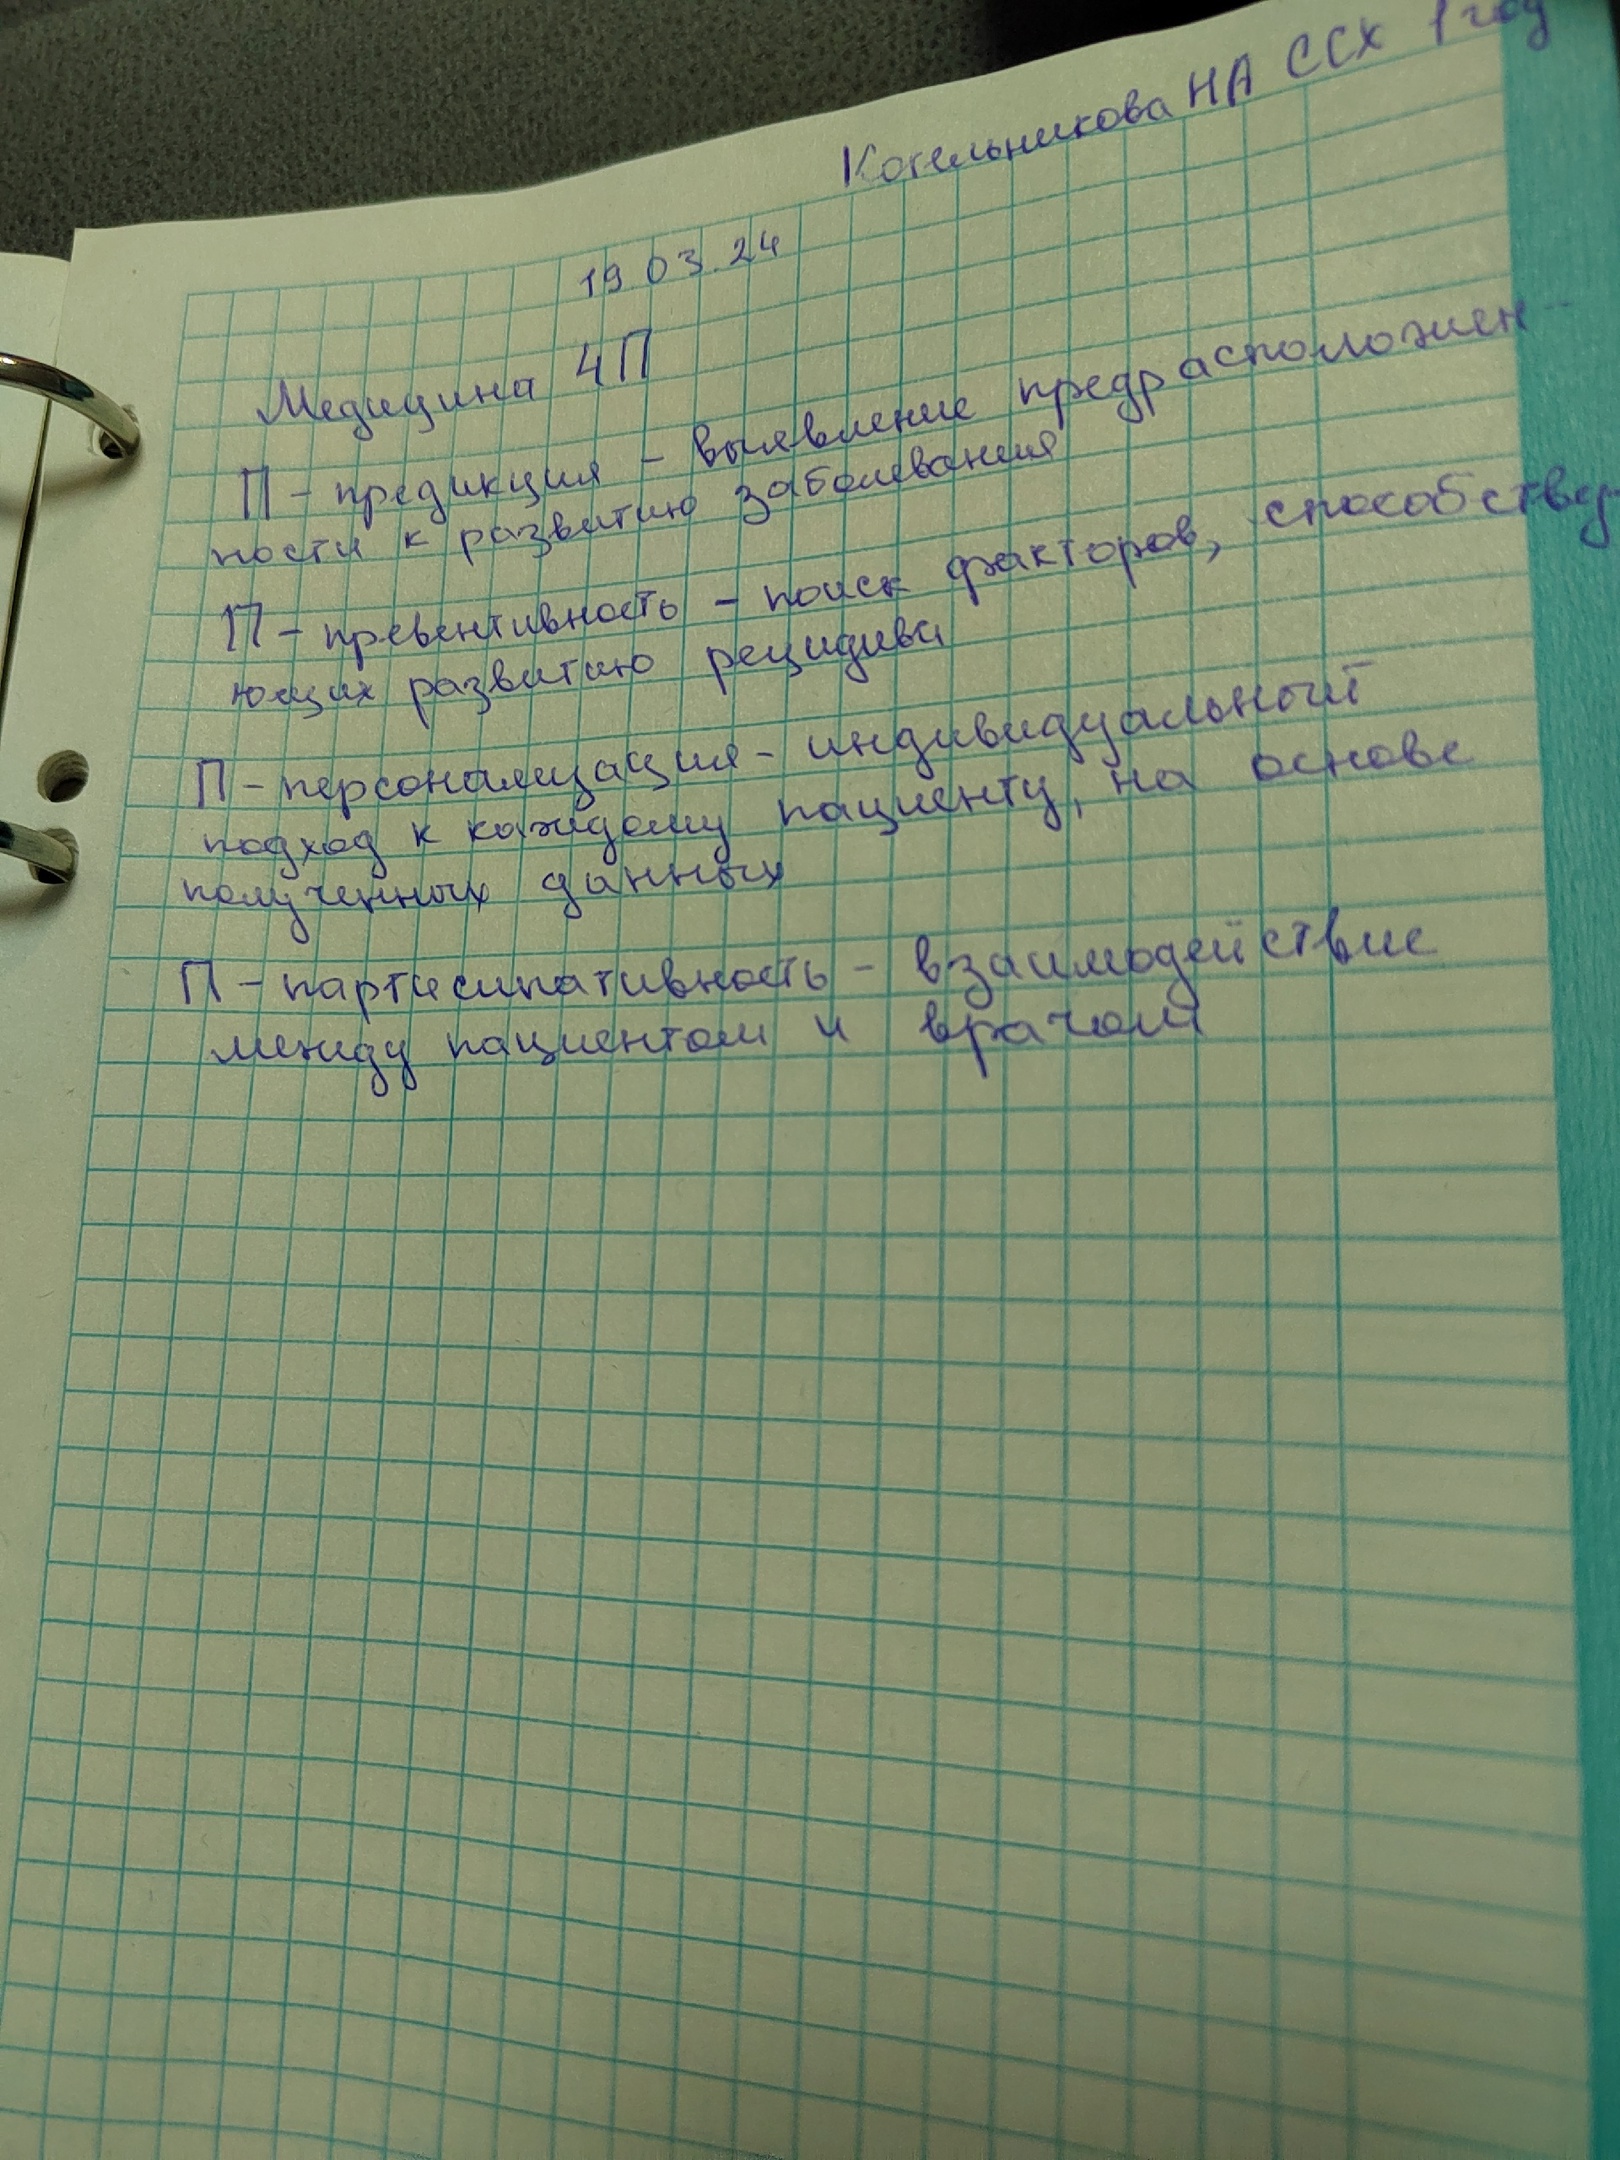 Котельникова НА ССХ 1 год
19.03.24
Медицина 4П
П - предикция - выявление предрасположен-
ности к развитию заболевания
П - превентивность - поиск факторов, способству
ющих развитию рецидива
П - персонализация - индивидуальный
подход к каждому пациенту, на основе
полученных данных
П - партисипативность - взаимодействие
между пациентом и врачом